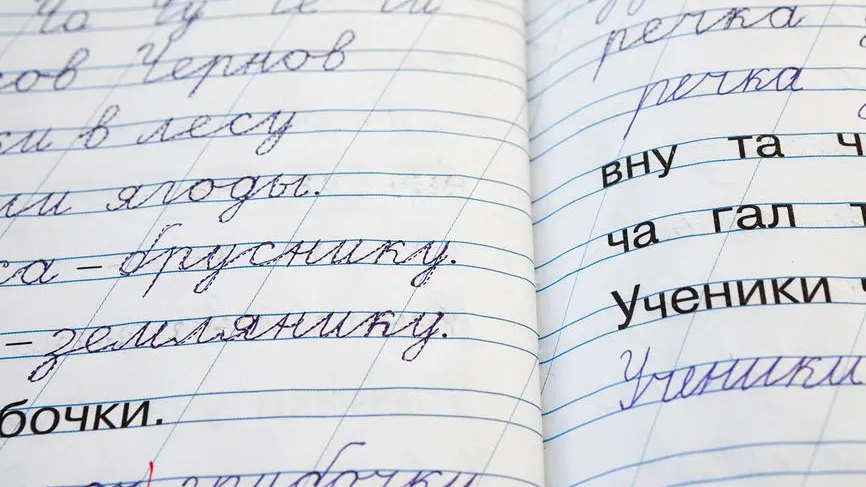 Ча Чу Че Чи
сов Чернов
ки в лесу
ли ягоды.
са – бруснику.
– землянику.
бочки.
грибочки
речка
речка
вну та ч
ча гал т
Ученики ч
Ученики